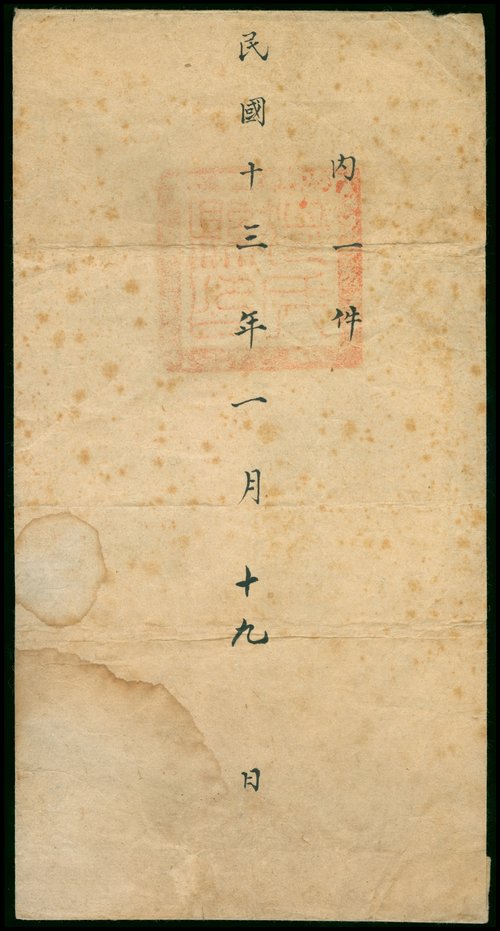 內一件
民國十三年一月十九日